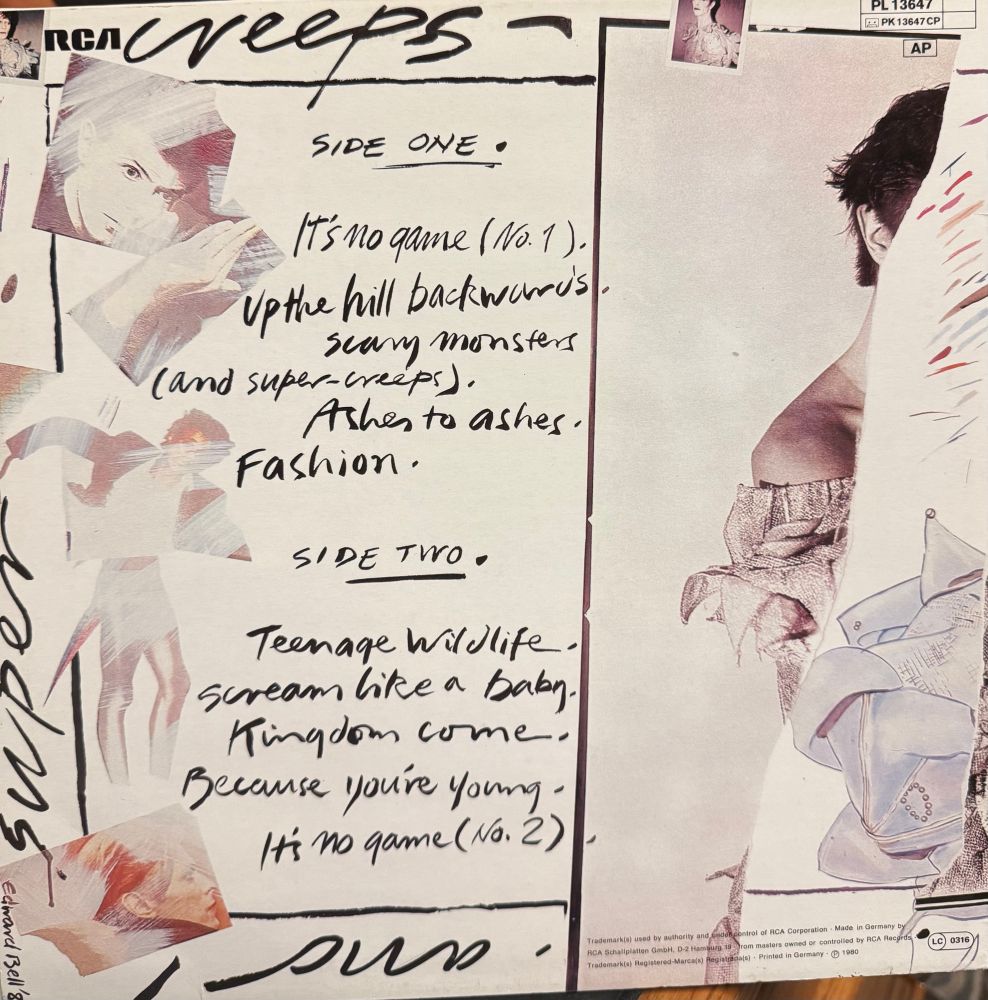 RCA creeps
PL 13647
PK 13647 CP
AP
SIDE ONE.
It's no game (No. 1).
Up the hill backwards.
scary monsters
(and super-creeps).
Ashes to ashes.
Fashion.
SIDE TWO.
Teenage Wildlife.
scream like a baby.
Kingdom come.
Because you're young.
It's no game (No. 2).
super
and
Edward Bell '8
Trademark(s) used by authority and under control of RCA Corporation · Made in Germany by
RCA Schallplatten GmbH, D-2 Hamburg 19 from masters owned or controlled by RCA Records
Trademark(s) Registered-Marca(s) Registrada(s) · Printed in Germany · Ⓟ 1980
LC 0316